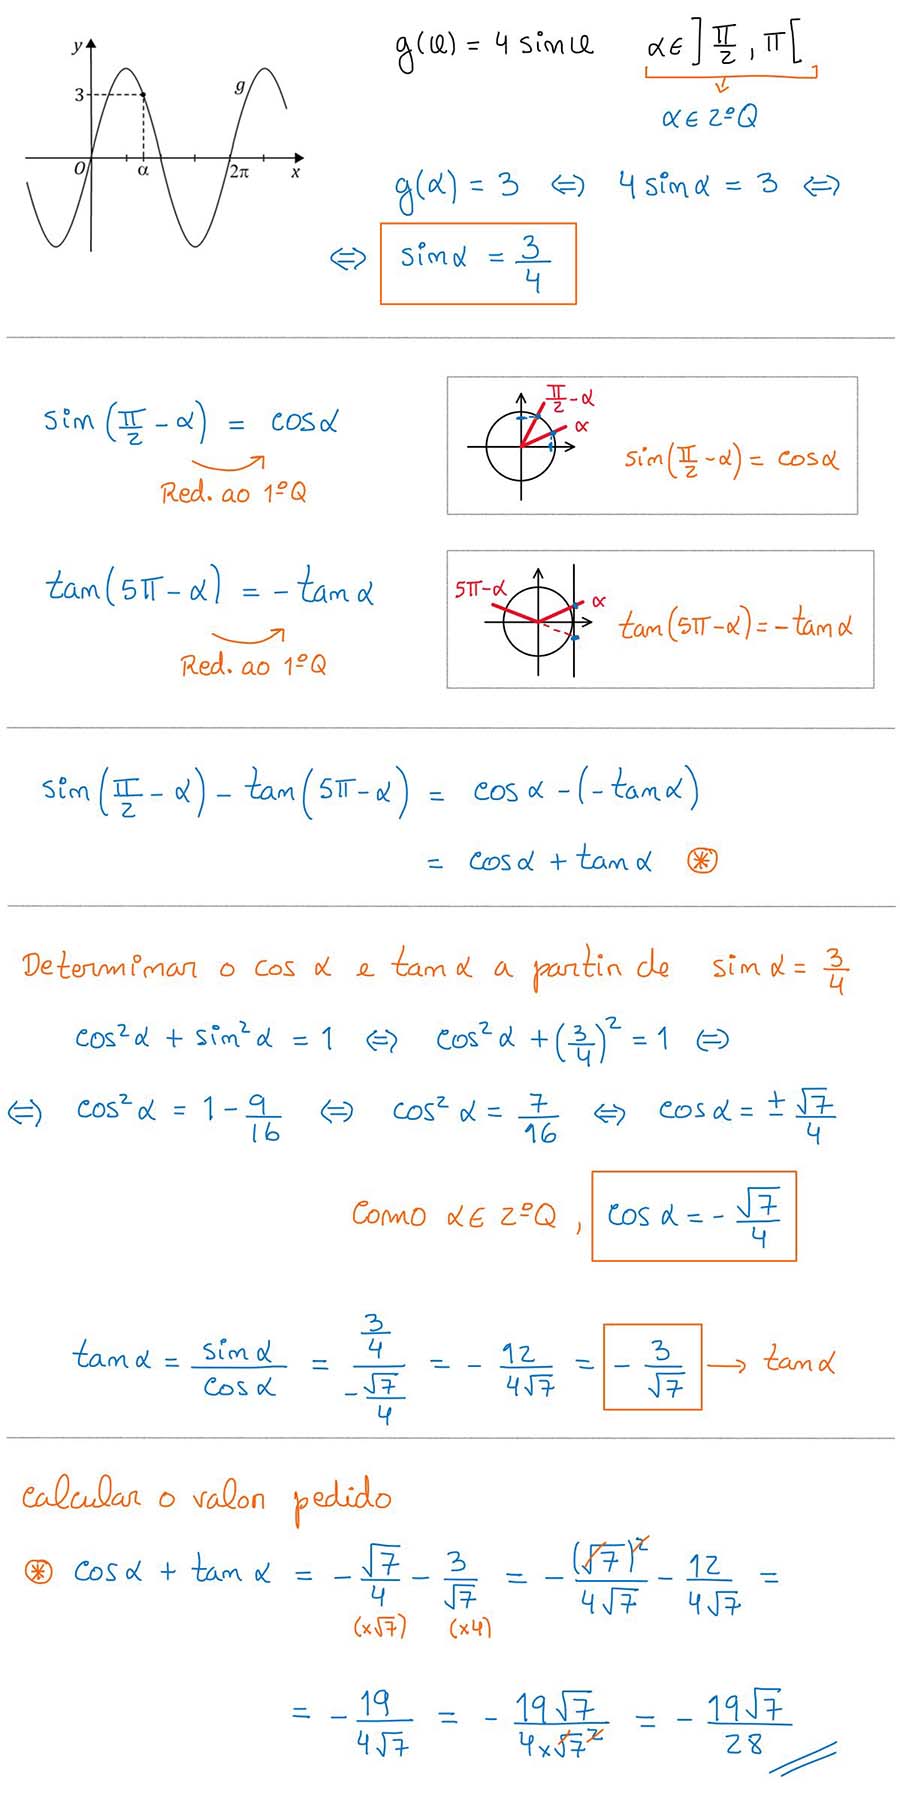 y
3
g
O
α
2π
x
g(x) = 4 sin x α ∈ ]π/2, π[
α ∈ 2ºQ
g(α) = 3 ⇔ 4 sin α = 3 ⇔
⇔ sin α = 3/4
sin(π/2 - α) = cos α
Red. ao 1ºQ
π/2 - α
α
sin(π/2 - α) = cos α
tan(5π - α) = - tan α
Red. ao 1ºQ
5π - α
α
tan(5π - α) = - tan α
sin(π/2 - α) - tan(5π - α) = cos α - (- tan α)
= cos α + tan α ⊛
Determinar o cos α e tan α a partir de sin α = 3/4
cos² α + sin² α = 1 ⇔ cos² α + (3/4)² = 1 ⇔
⇔ cos² α = 1 - 9/16 ⇔ cos² α = 7/16 ⇔ cos α = ± √7/4
Como α ∈ 2ºQ, cos α = - √7/4
tan α = sin α/cos α = (3/4)/(-√7/4) = - 12/4√7 = - 3/√7 → tan α
Calcular o valor pedido
⊛ cos α + tan α = - √7/4 - 3/√7 = - (√7)²/4√7 - 12/4√7 =
(×√7) (×4)
= - 19/4√7 = - 19√7/4×√7² = - 19√7/28